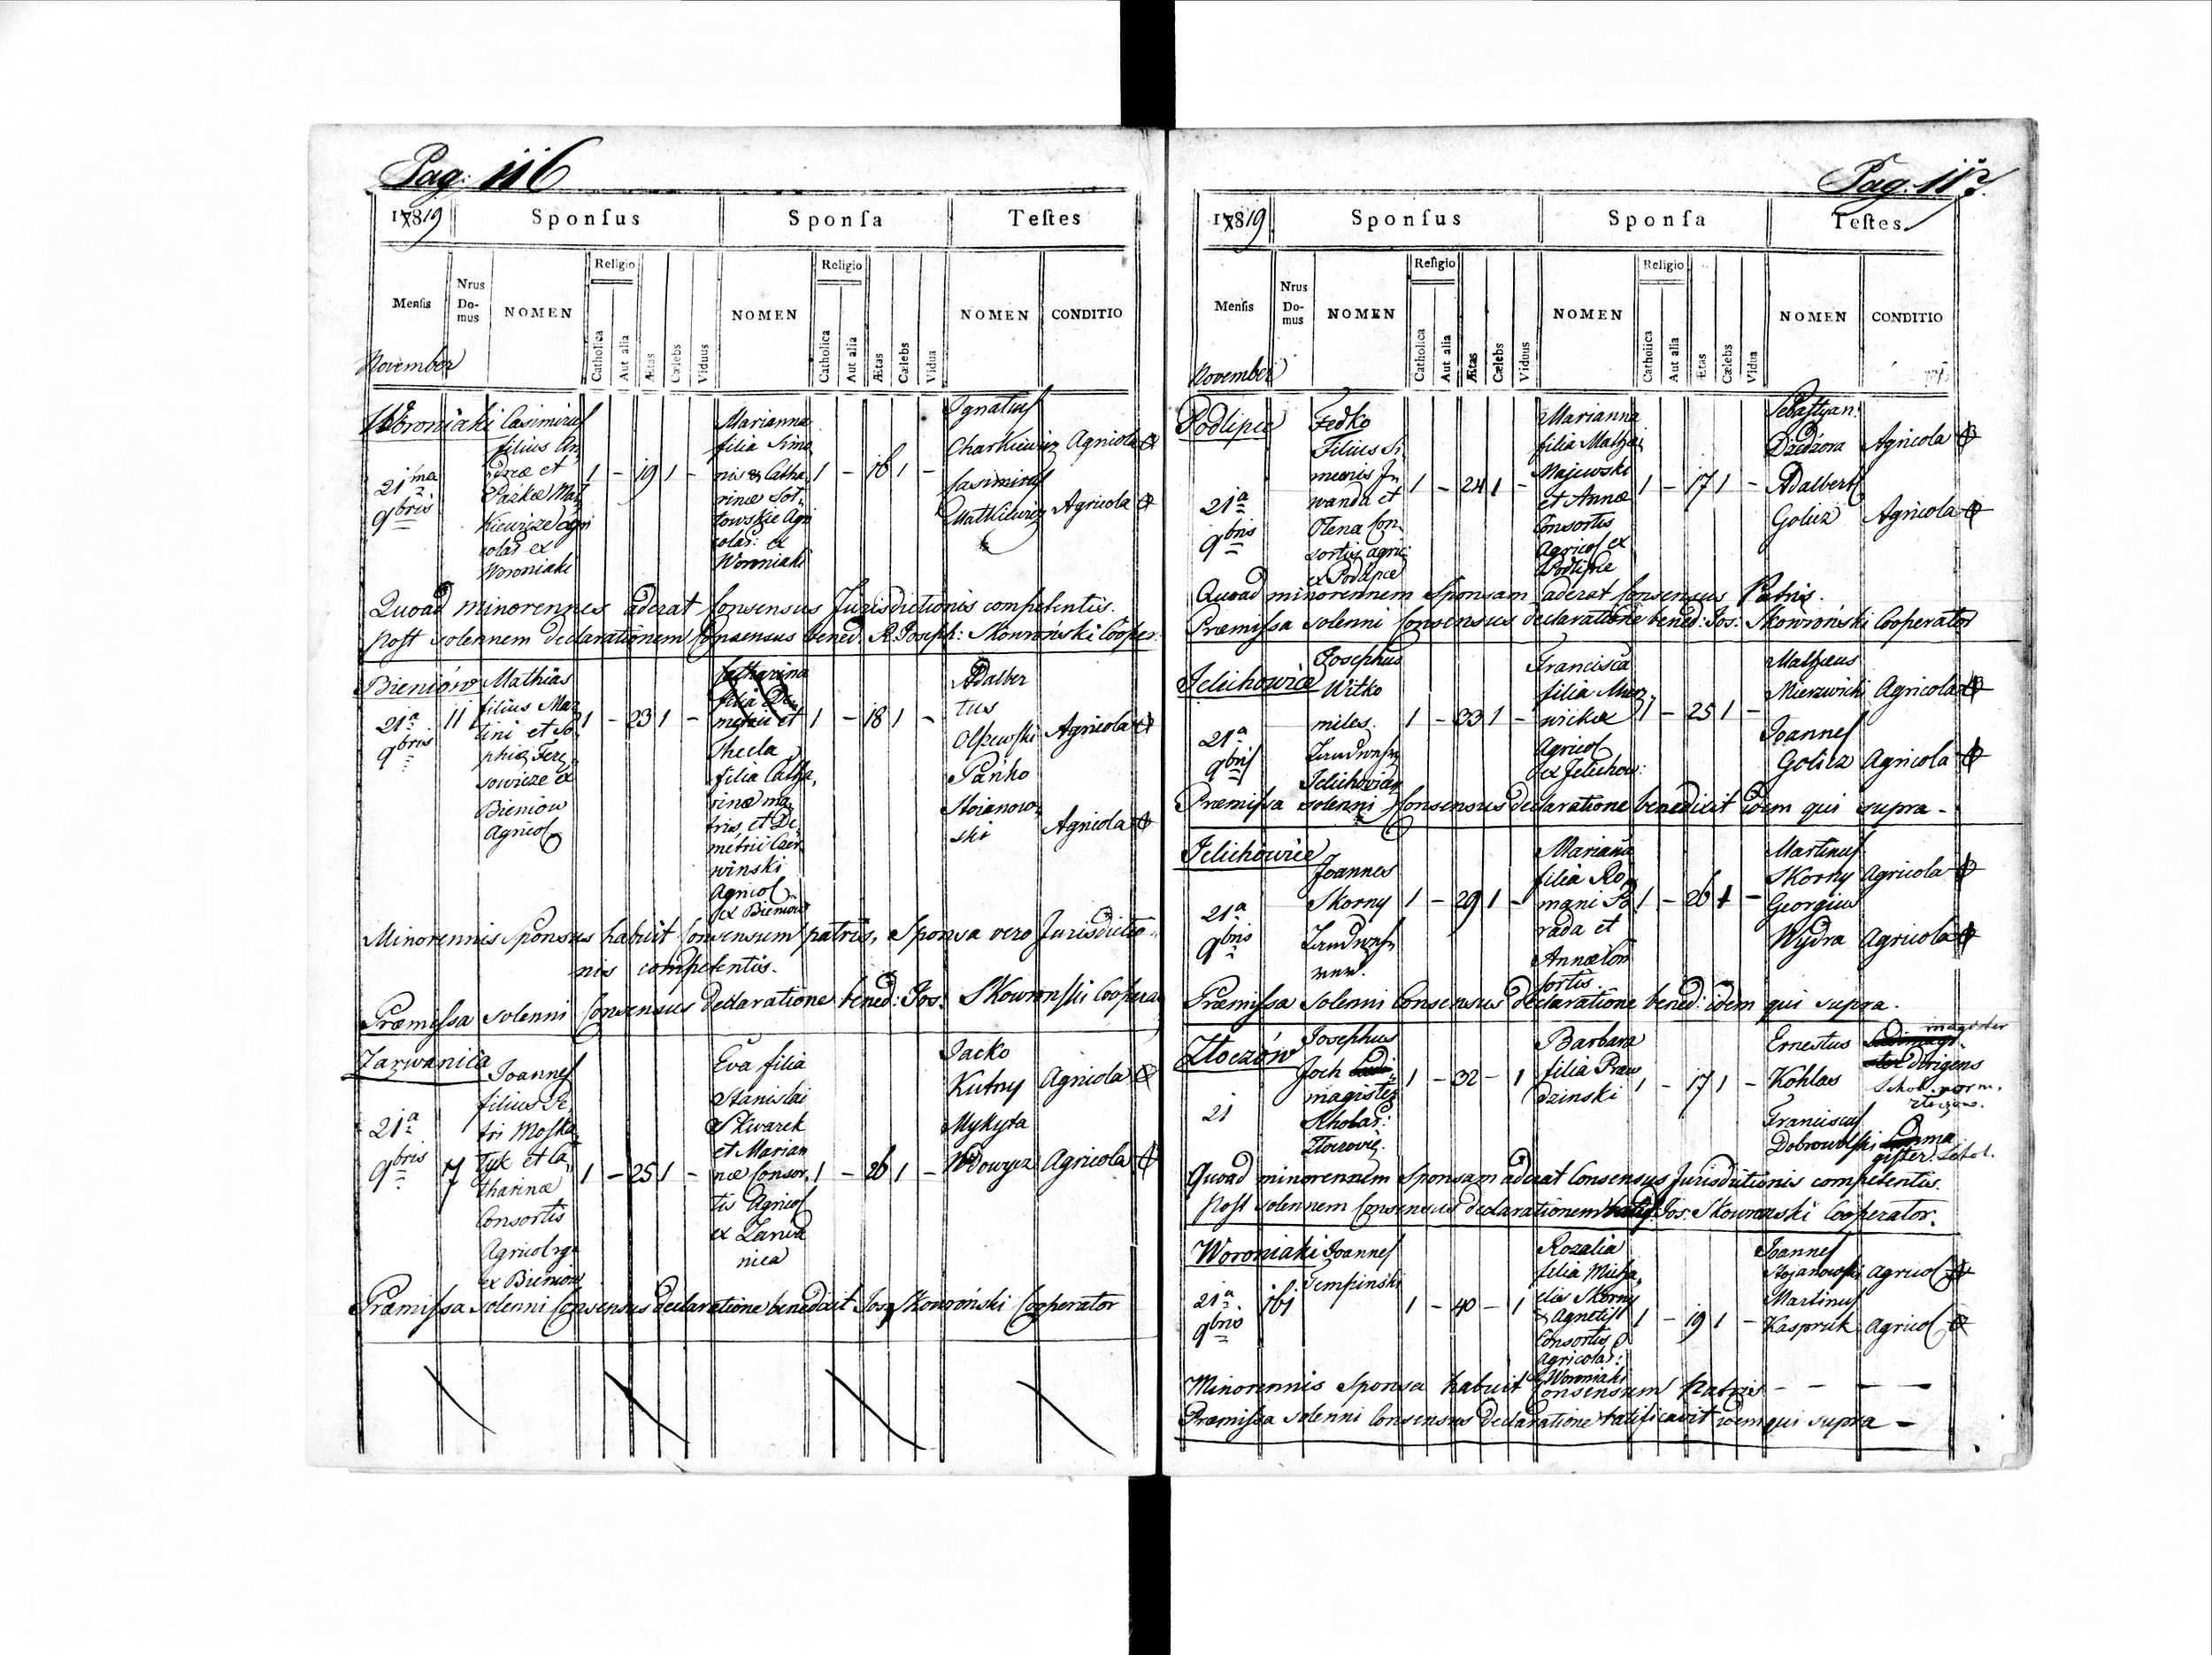 Pag: 116
1819 Sponsus Sponsa Testes
Mensis Nrus Domus NOMEN Religio Catholica Aut alia Ætas Cælebs Viduus NOMEN Religio Catholica Aut alia Ætas Cælebs Vidua NOMEN CONDITIO
November
Woroniaki
21ma
9bris
Casimirus
filius An
dreæ et
kiewicze agri
colar ex
Woroniaki
1 - 19 1 -
Marianna
filia Simo
nis & Catha
rinæ Sot
towskie Agri
colar: ex
Woroniaki
1 - 18 1 -
Ignatius
Charkiewicz Agricola
Casimirus
Matkiewicz Agricola
Quoad minorennes aderat Consensus Jurisdictionis competentis.
post solennem declarationem Consensus bened. R. Joseph: Skowroński Cooper.
Bieniów
21a
9bris
11
Mathias
filius Mar
tini et So
phiæ Fere
sowicze ex
Bieniow
Agricol
1 - 23 1 -
Catharina
filia De
metrii et
Thecla
filia Catha
rinæ ma
tris, et De
metrii Czer
winski
Agricol
ex Bieniow
1 - 18 1 -
Adalber
tus
Olszewski Agricola
Pańko
Stoianow
ski Agricola
Minorennis Sponsus habuit Consensum patris, Sponsa vero Jurisdictio
nis competentis.
Præmissa solenni Consensus declaratione bened: Jos. Skowronski Coopera
Zarwanica
21a
9bris
7
Joannes
filius Pe
tri Moska
tyk et Ca
tharinæ
Consortis
Agricol
ex Bieniow
1 - 25 1 -
Eva filia
Stanislai
Skwarek
et Marian
næ Consor
tis Agricol
ex Zarwa
nica
1 - 26 1 -
Jacko
Kutny Agricola
Mykyta
Wdowycz Agricola
Præmissa solenni Consensus declaratione benedixit Jos. Skowroński Cooperator
Pag. 117.
1819 Sponsus Sponsa Testes
Mensis Nrus Domus NOMEN Religio Catholica Aut alia Ætas Cælebs Viduus NOMEN Religio Catholica Aut alia Ætas Cælebs Vidua NOMEN CONDITIO
November
Podlipce
21a
9bris
Fedko
Filius Si
meonis In
wanda et
Olena Con
sortis agric:
ex Podlipce
1 - 24 1 -
Marianna
filia Mathæi
Majewski
et Annæ
Consortis
Agricol ex
Podlipce
1 - 17 1 -
Sebastyan
Dziedzora Agricola
Adalbert
Golicz Agricola
Quoad minorennem Sponsam aderat Consensus Patris.
Præmissa solenni Consensus declaratione bened: Jos: Skowroński Cooperator
Jelichowice
21a
9bris
Josephus
Witko
miles
Jelichovian
1 - 33 1 -
Francisca
filia Mierz
wickæ
Agricol
ex Jelichow:
1 - 25 1 -
Mathæus
Mierzwicki Agricola
Joannes
Golicz Agricola
Præmissa solenni Consensus declaratione benedixit idem qui supra -
Jelichowice
21a
9bris
Joannes
Skorny
1 - 29 1 -
Marianna
filia Ro
mani Po
rada et
Annæ Con
sortis
1 - 26 1 -
Martinus
Skorny Agricola
Georgius
Wydra Agricola
Præmissa solenni Consensus declaratione bened: idem qui supra.
Złoczów
21
Josephus
Joch
magister
Scholar:
Złoczovie.
1 - 32 - 1
Barbara
filia Praw
dzinski
1 - 17 1 -
Ernestus
Kohlas
magister
dirigens
Schol. norm.
Franciscus
Dobrowolski
gister Schol.
Quoad minorennem Sponsam aderat Consensus Jurisdictionis competentis.
Post solennem Consensus declarationem Jos: Skowronski Cooperator.
Woroniaki
21a
9bris
161
Joannes
Tempinski
1 - 40 - 1
Rozalia
filia Micha
elis Skorny
& Agnetis
Consortis
Agricolar:
Woroniaki
1 - 19 1 -
Joannes
Stojanowski Agricol
Martinus
Kaspruk Agricol
Minorennis Sponsa habuit Consensum Patris - - - -
Præmissa solenni Consensus declaratione ratificavit idem qui supra -